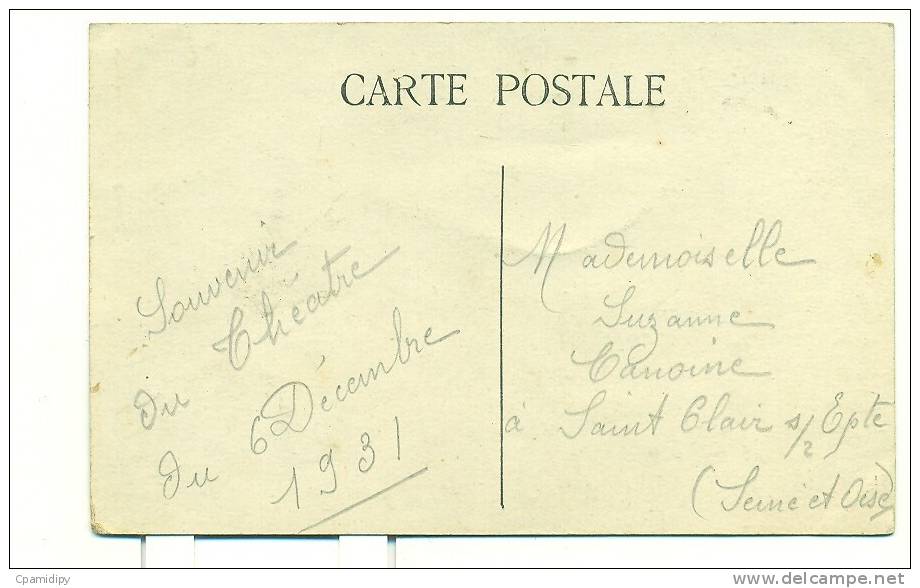 CARTE POSTALE
Souvenir
du Théâtre
du 6 Décembre
1931
Mademoiselle
Suzanne
Canoine
à Saint Clair s/ Epte
(Seine et Oise)
Cpamidipy
www.delcampe.net